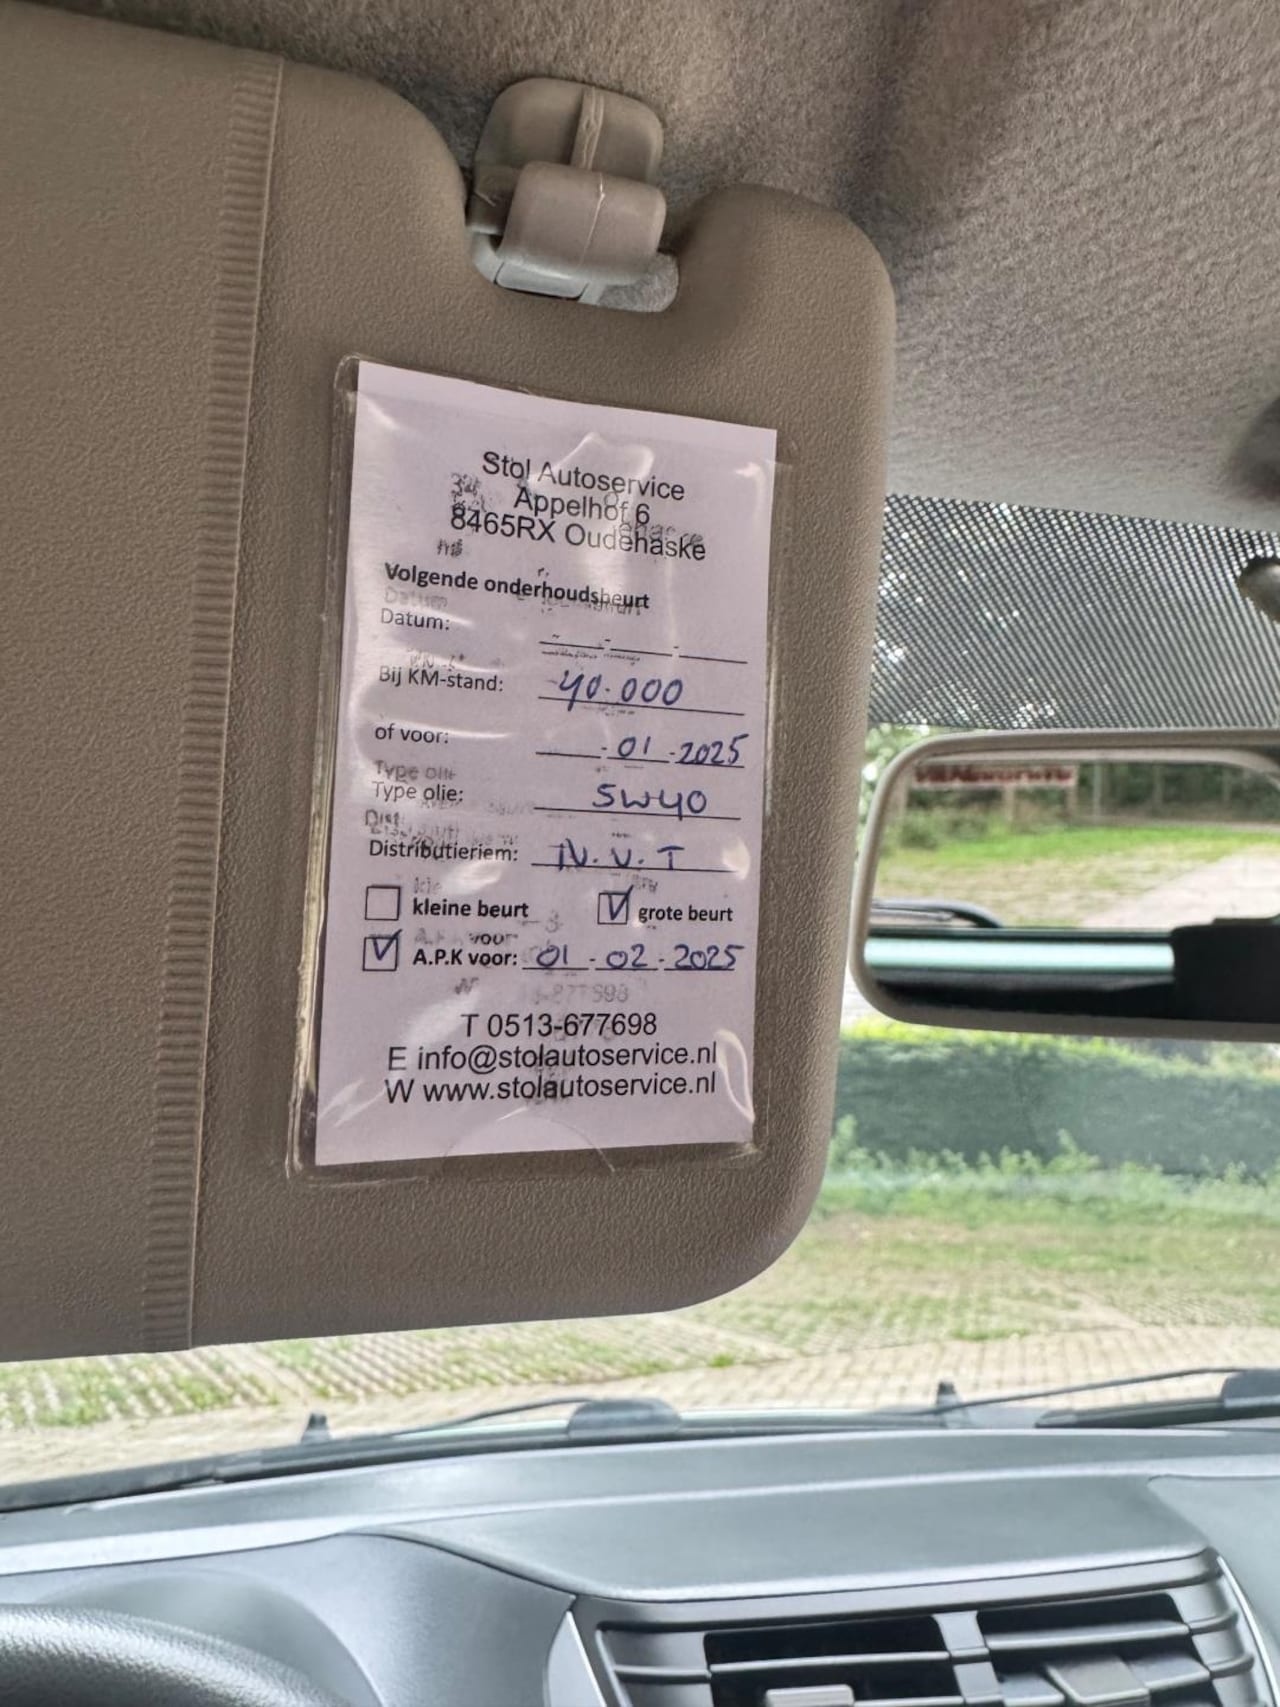 Stol Autoservice
Appelhof 6
8465RX Oudehaske
Volgende onderhoudsbeurt
Datum:
Bij KM-stand: 40.000
of voor: - 01 - 2025
Type olie: 5W40
Distributieriem: N.V.T
kleine beurt grote beurt
A.P.K voor: 01 - 02 - 2025
T 0513-677698
E info@stolautoservice.nl
W www.stolautoservice.nl